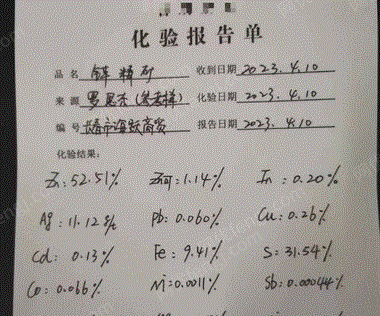 化验报告单
品名 锌精矿 收到日期 2023.4.10
来源 罗恩杰 化验日期 2023.4.10
编号 长春市海跃商贸 报告日期 2023.4.10
化验结果:
Zn:52.51% 1.14% In:0.20%
Ag:11.12g/t Pb:0.060% Cu:0.26%
Cd:0.13% Fe:9.41% S:31.54%
Co:0.066% Ni:0.0011% Sb:0.00044%